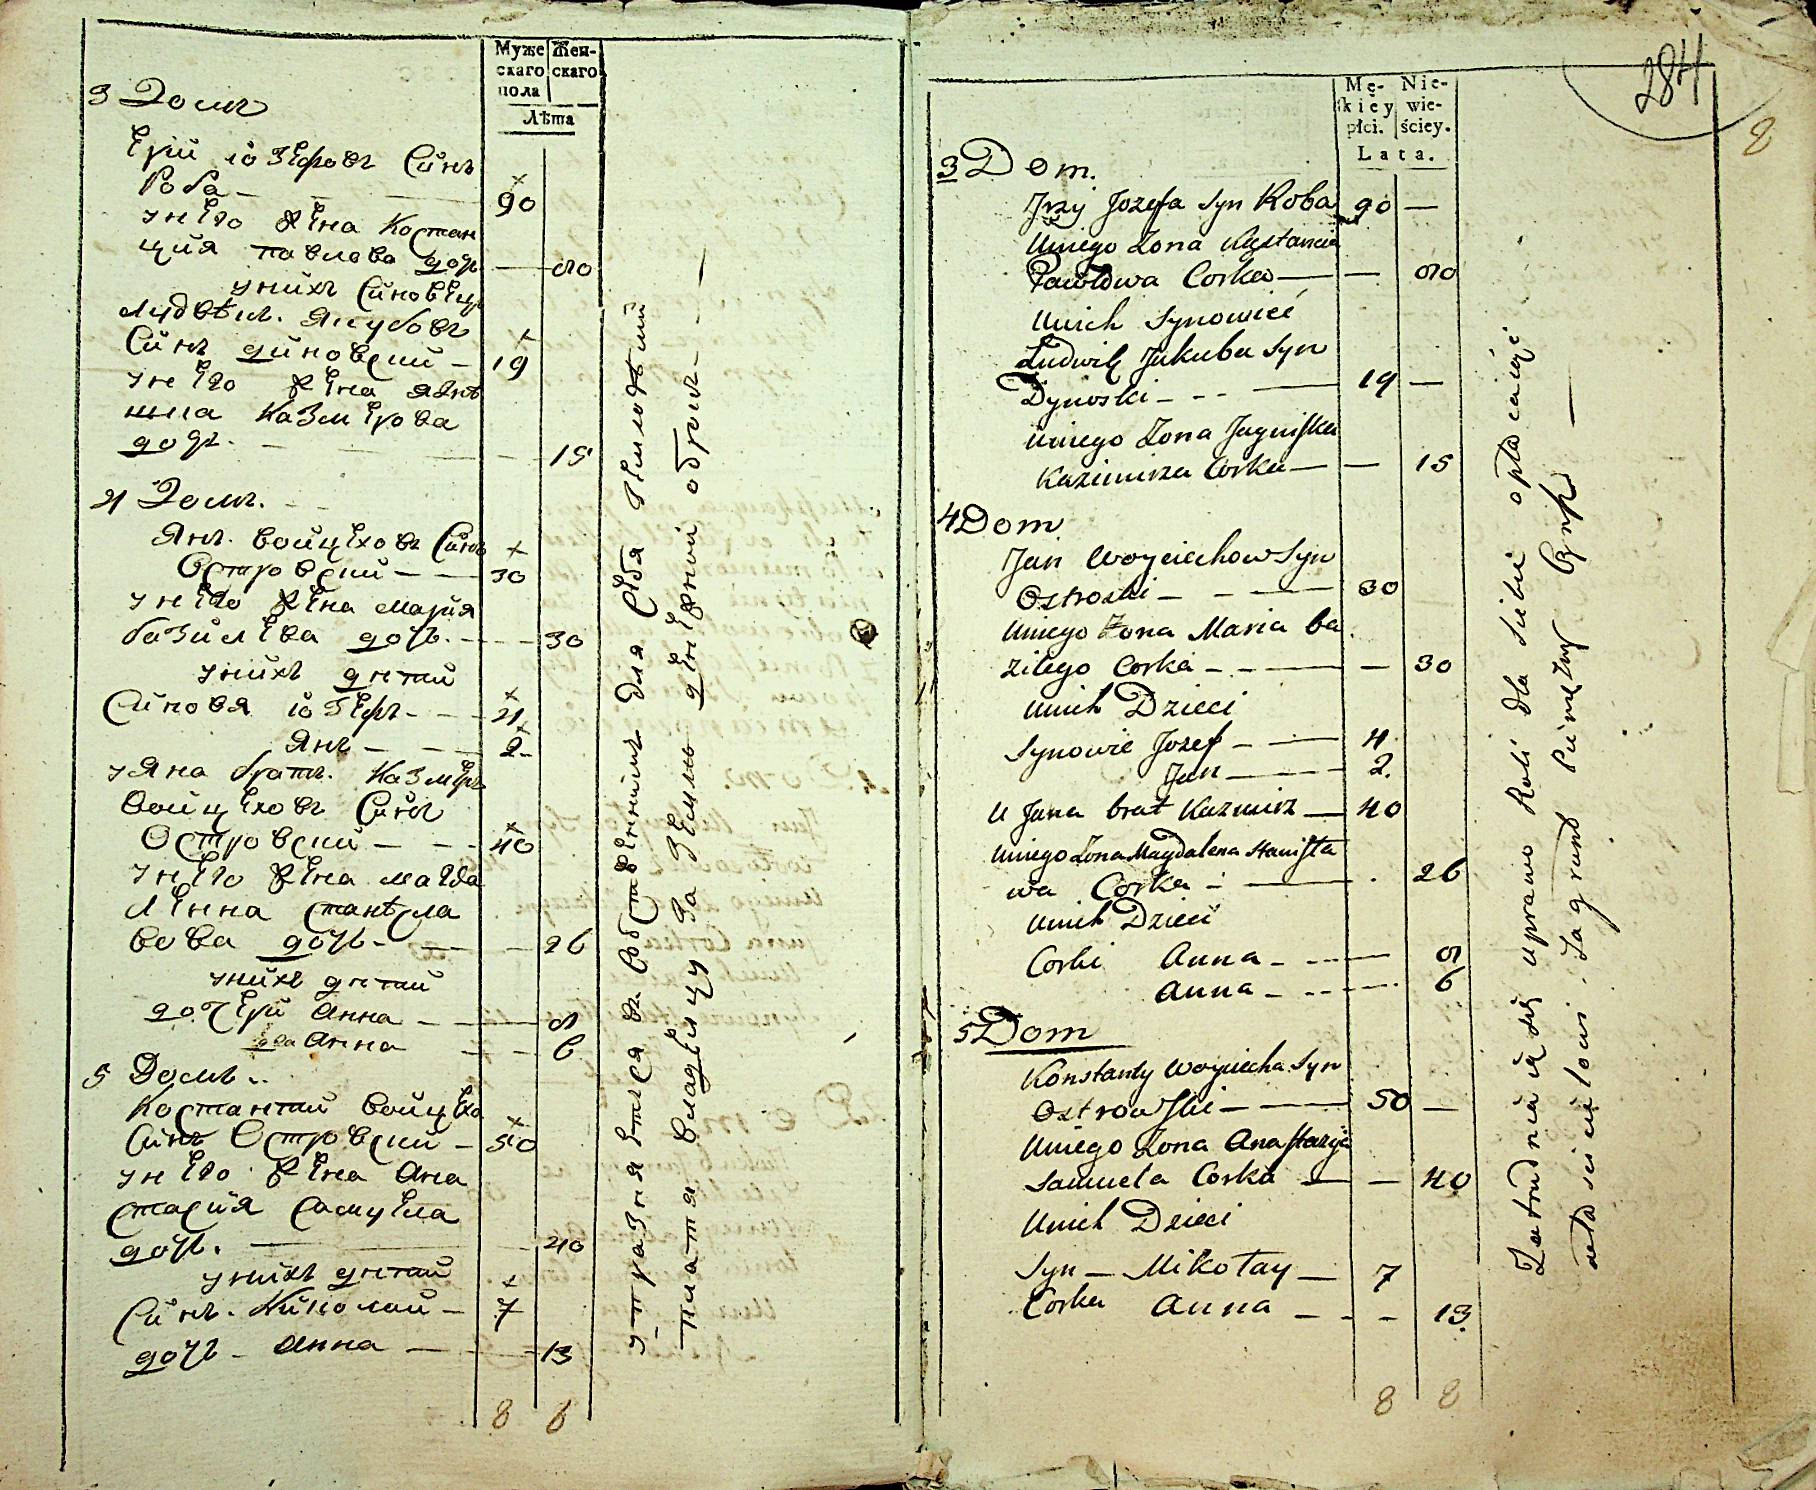 Муже Жен-
скаго скаго
пола
Лѣта
3 Домъ
Ерiй iозефовъ Синъ
Роба — 90
у него жена Костан
цiя павлова дочь — 80
у нихъ Синовец
лудвѣкъ якубовъ
Синъ диновский — 19
у него жена ягнѣ
шка Казмерова
дочь — 15
4 Домъ.
Янъ войцеховъ Синъ
Островский — 30
у него жена мария
базилева дочь — 30
у нихъ дети
Синовя iозефъ — 4
Янъ — 2
у Яна братъ Казмеръ
войцеховъ Синъ
Островский — 40
у него жена магда
лена станѣсла
вова дочь — 26
у нихъ дети
дочери анна — 8
анна — 6
5 Домъ
Костантий войцеха
Синъ Островский — 50
у него жена ана
стасия самуела
дочь. — 40
у нихъ дети
Синъ Николай — 7
дочь — анна — 13
8 6
упражняется въ собственнимъ для себя земледѣлии
платя владелцу за землю денежний оброкъ —
284
8
Mę- Nie-
skiey wie-
płci. ściey.
Lata.
3 Dom.
Jrzy Jozefa Syn Roba 90 —
Uniego Zona Kgstancia
Pawłowa Corka — — 80
Unich Synowieć
Ludwik Jakuba Syn
Dynoski — 19 —
Uniego Zona Jagniſzka
Kazimirza Corka — — 15
4 Dom
Jan Woyciechow Syn
Ostroski — 30
Uniego Zona Maria ba
zilego Corka — — 30
Unich Dzieci
Synowie Jozef — 4
Jan — 2.
U Jana brat Kazmirz — 40
Uniego Zona Magdalena Staniſła
wa Corka — 26
Unich Dzieci
Corki Anna — 8
Anna — 6
5 Dom
Konstanty Woyciecha Syn
Ostrowſki — 50 —
Uniego Zona Anaſtazya
Samuela Corka — — 40
Unich Dzieci
Syn — Mikołay — 7
Corka Anna — 13.
8 8
Zatrudnia się uprawą Roli dla siebie opłacaiąc
właścicielowi Za grunt Pieniężny Czynsz —